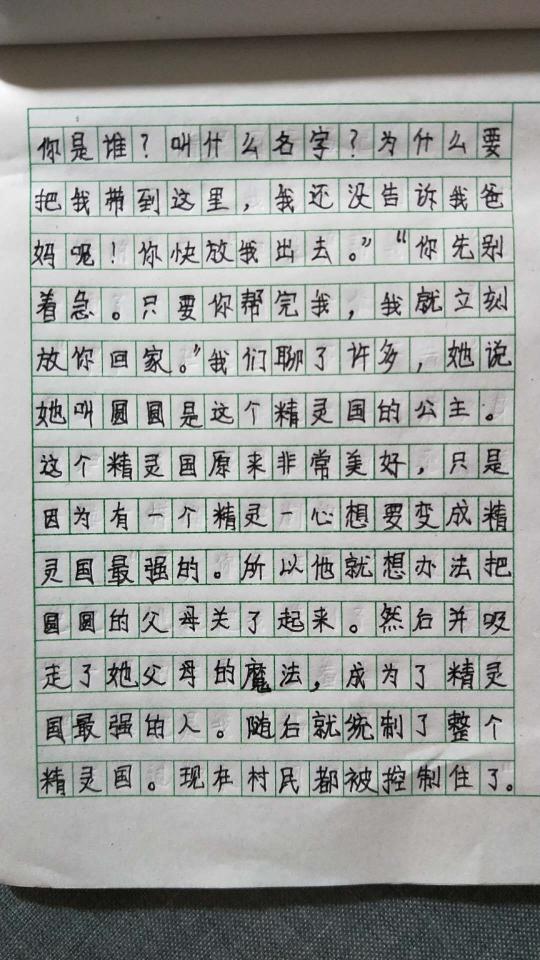 你是谁？叫什么名字？为什么要
把我带到这里，我还没告诉我爸
妈呢！你快放我出去。”“你先别
着急。只要你帮完我，我就立刻
放你回家。”我们聊了许多，她说
她叫圆圆是这个精灵国的公主。
这个精灵国原来非常美好，只是
因为有一个精灵一心想要变成精
灵国最强的。所以他就想办法把
圆圆的父母关了起来。然后并吸
走了她父母的魔法，成为了精灵
国最强的人。随后就统制了整个
精灵国。现在村民都被控制住了。